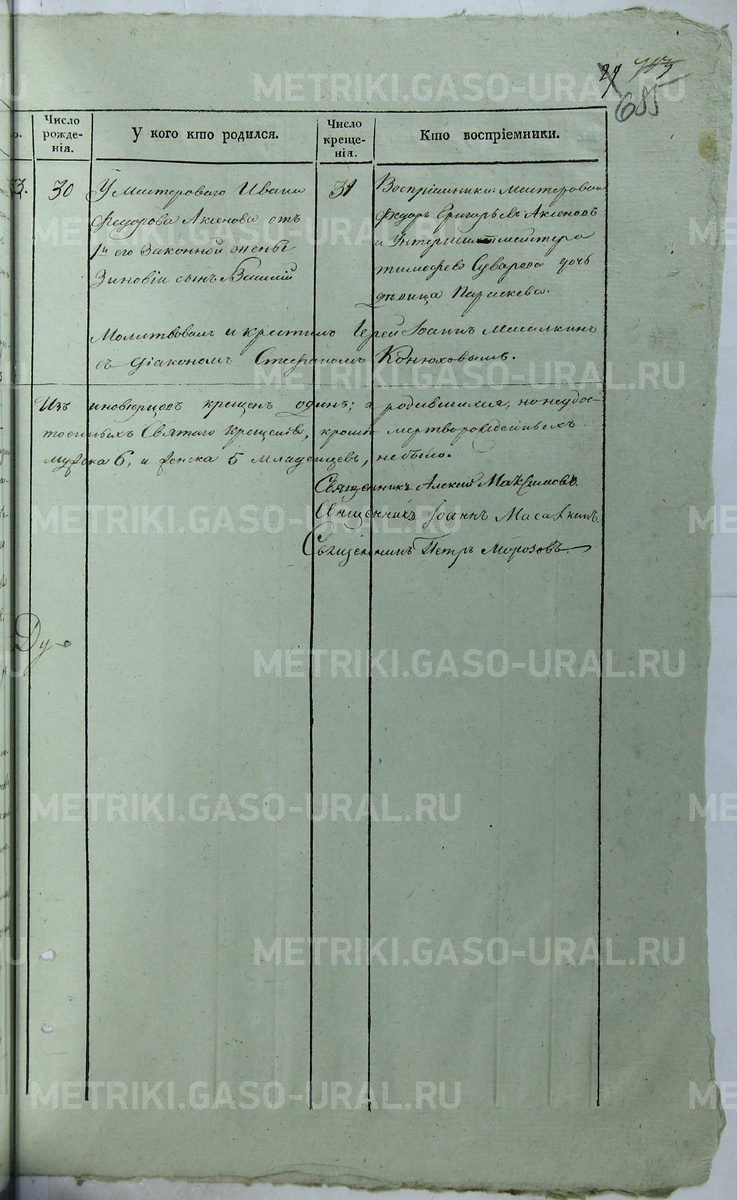 685
Число рожденія.
У кого кто родился.
Число крещенія.
Кто воспріемники.
30
У Мастероваго Ивана
Федорова Аксенова отъ
1й его законной жены
Зиновіи сынъ Василій
31
Воспріемники: Мастеровой
Федоръ Григорьевъ Аксеновъ
и Унтершихтмейстера
Тимофея Суварева дочь
дѣвица Параскева.
Молитвовалъ и крестилъ Іерей Іоаннъ Масалкинъ
съ Діакономъ Стефаномъ Конюховымъ.
Изъ иновѣрцевъ крещенъ одинъ; а родившихся, но неудос-
тоенныхъ Святаго Крещенія, кромѣ мертворожденныхъ
мужска 6, и женска 5 младенцевъ, небыло.
Священникъ Алексій Максимовъ.
Священникъ Іоаннъ Масалкинъ.
Священникъ Петръ Морозовъ
Ду-
METRIKI.GASO-URAL.RU